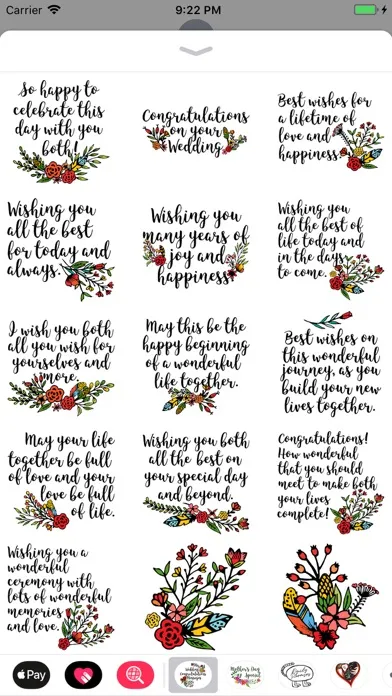 Carrier
9:22 PM
So happy to
celebrate this
day with you
both!
Congratulations
on your
Wedding
Best wishes for
a lifetime of
love and
happiness
Wishing you
all the best
for today and
always.
Wishing you
many years of
joy and
happiness
Wishing you
all the best of
life today and
in the days
to come.
I wish you both
all you wish for
yourselves and
more.
May this be the
happy beginning
of a wonderful
life together.
Best wishes on
this wonderful
journey, as you
build your new
lives together.
May your life
together be full
of love and your
love be full
of life.
Wishing you both
all the best on
your special day
and beyond.
Congratulations!
How wonderful
that you should
meet to make both
your lives
complete!
Wishing you a
wonderful
ceremony with
lots of wonderful
memories
and love.
Pay
Mother's Day
Special